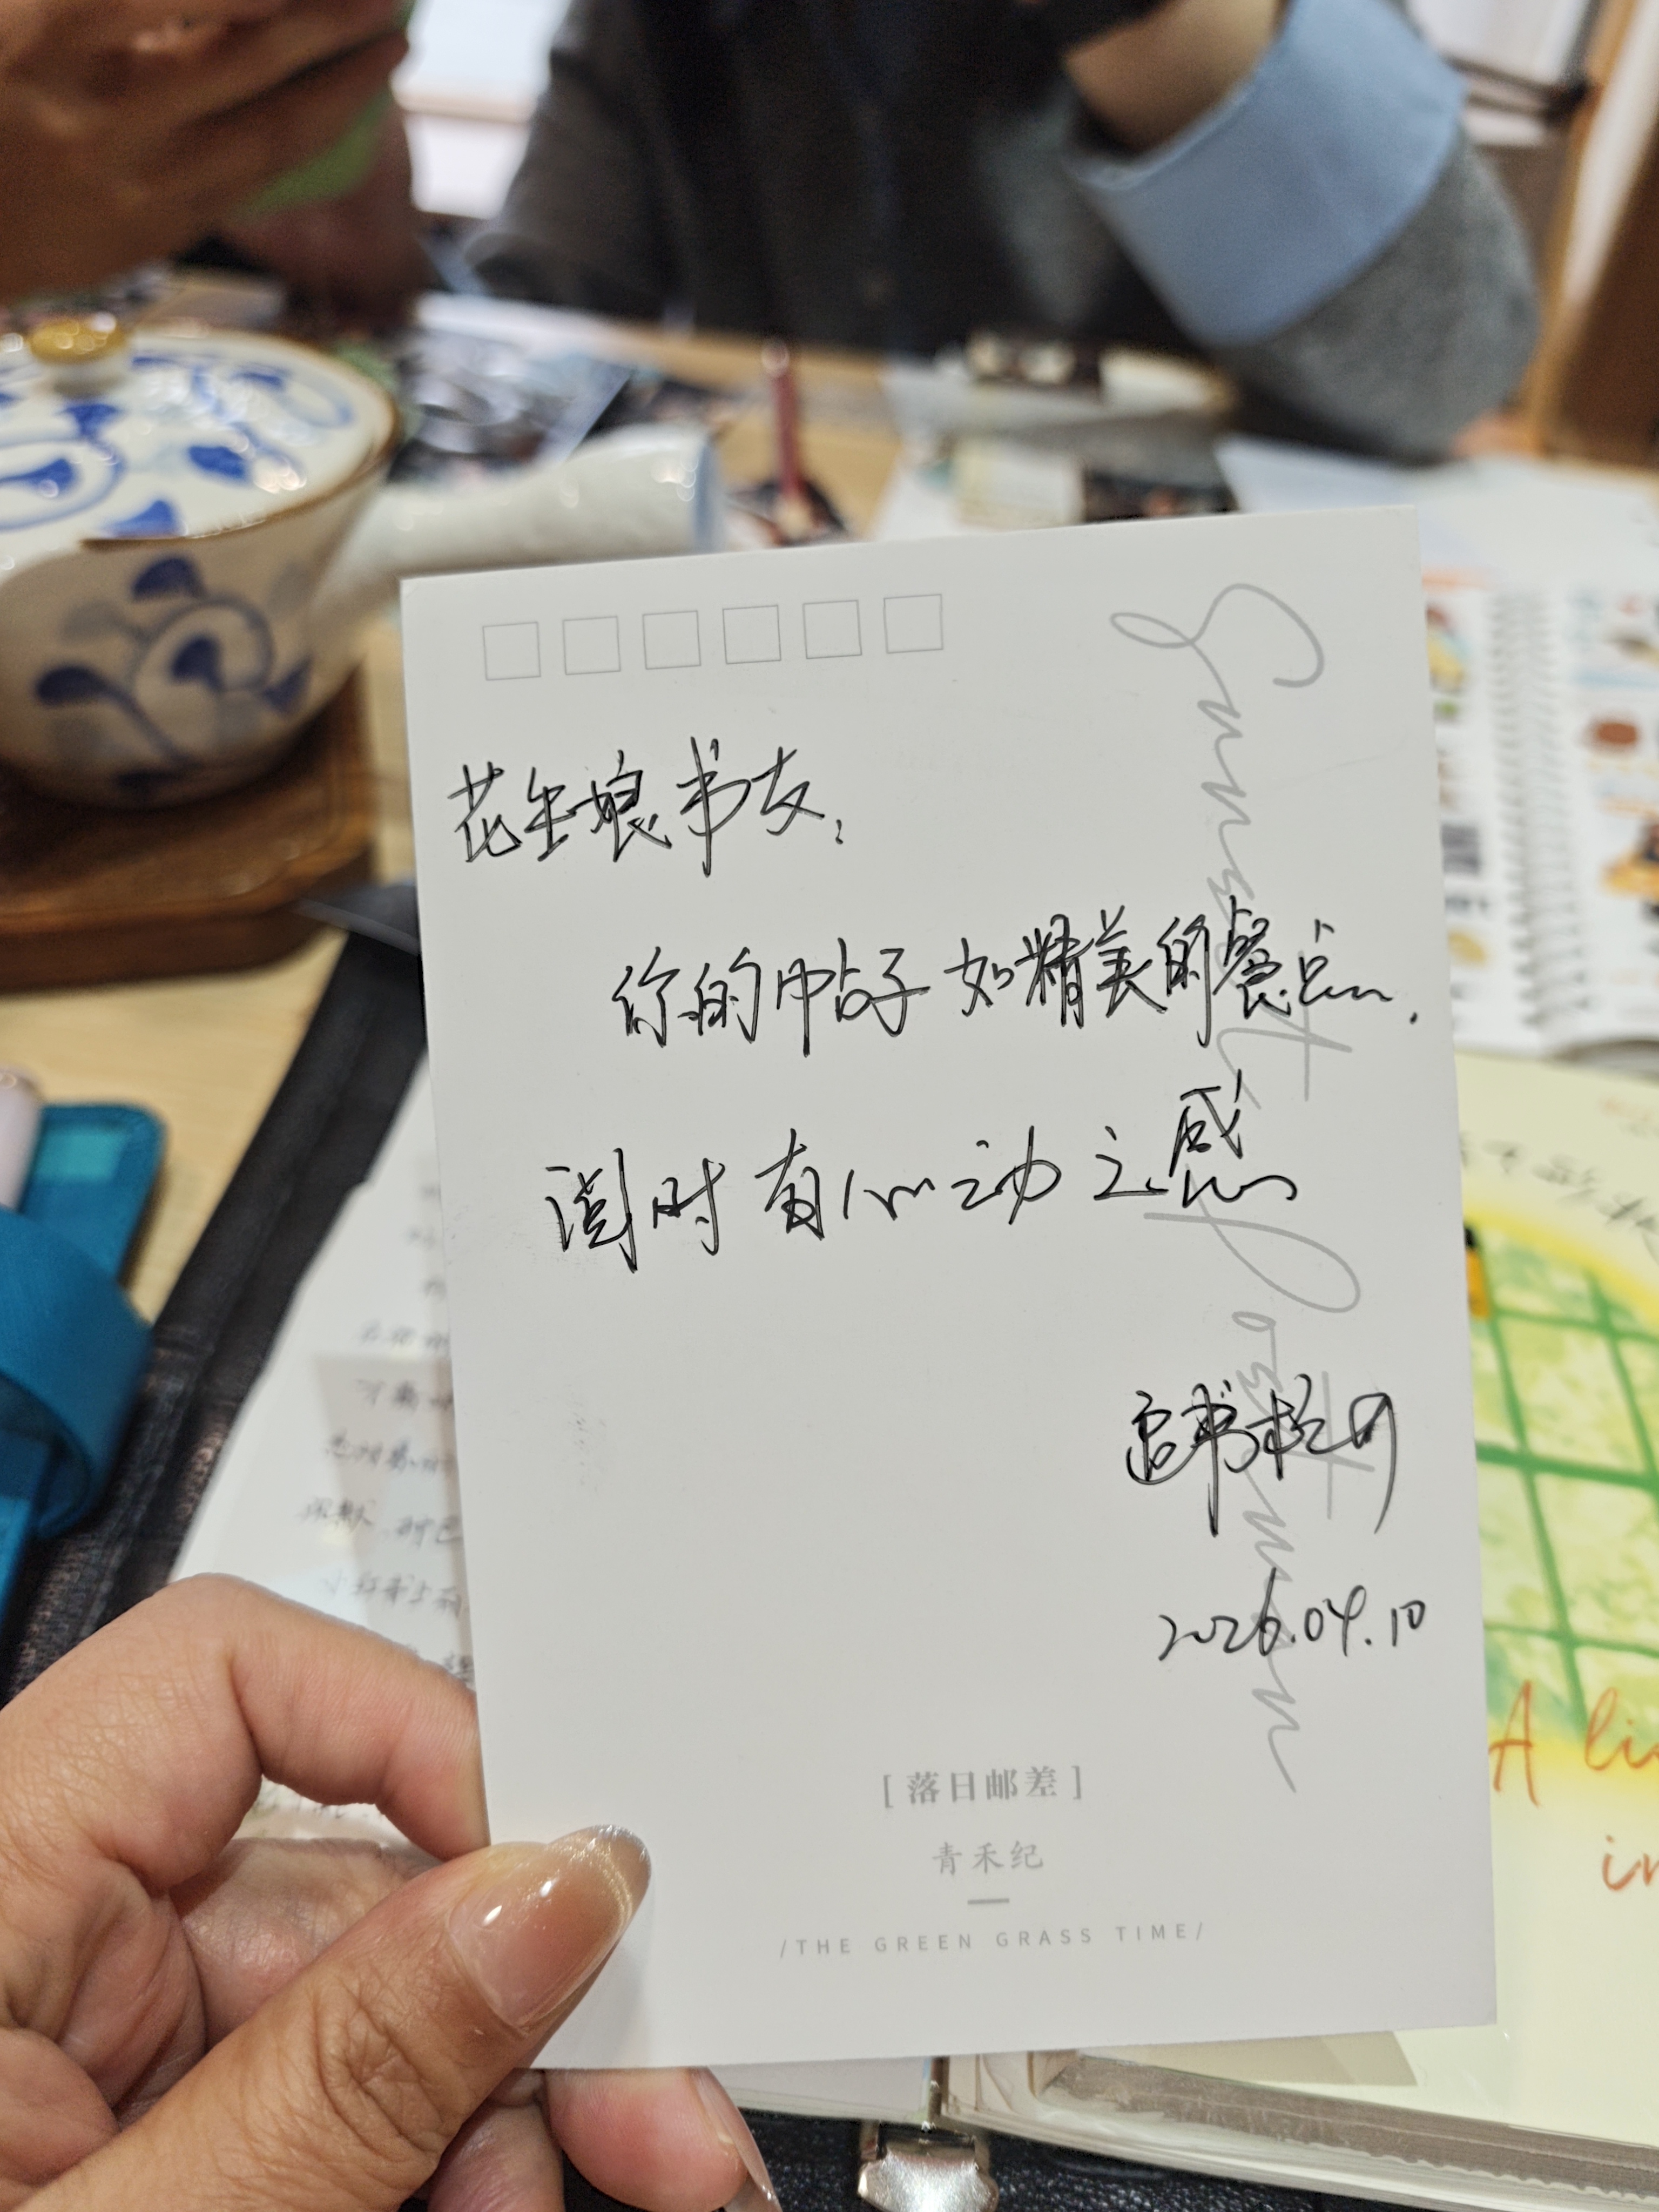 花生娘书友:
你的帖子如精美的餐点.
阅时有心动之感
追书
2026.04.10
Sunset Postman
[落日邮差]
青禾纪
/THE GREEN GRASS TIME/
A
in